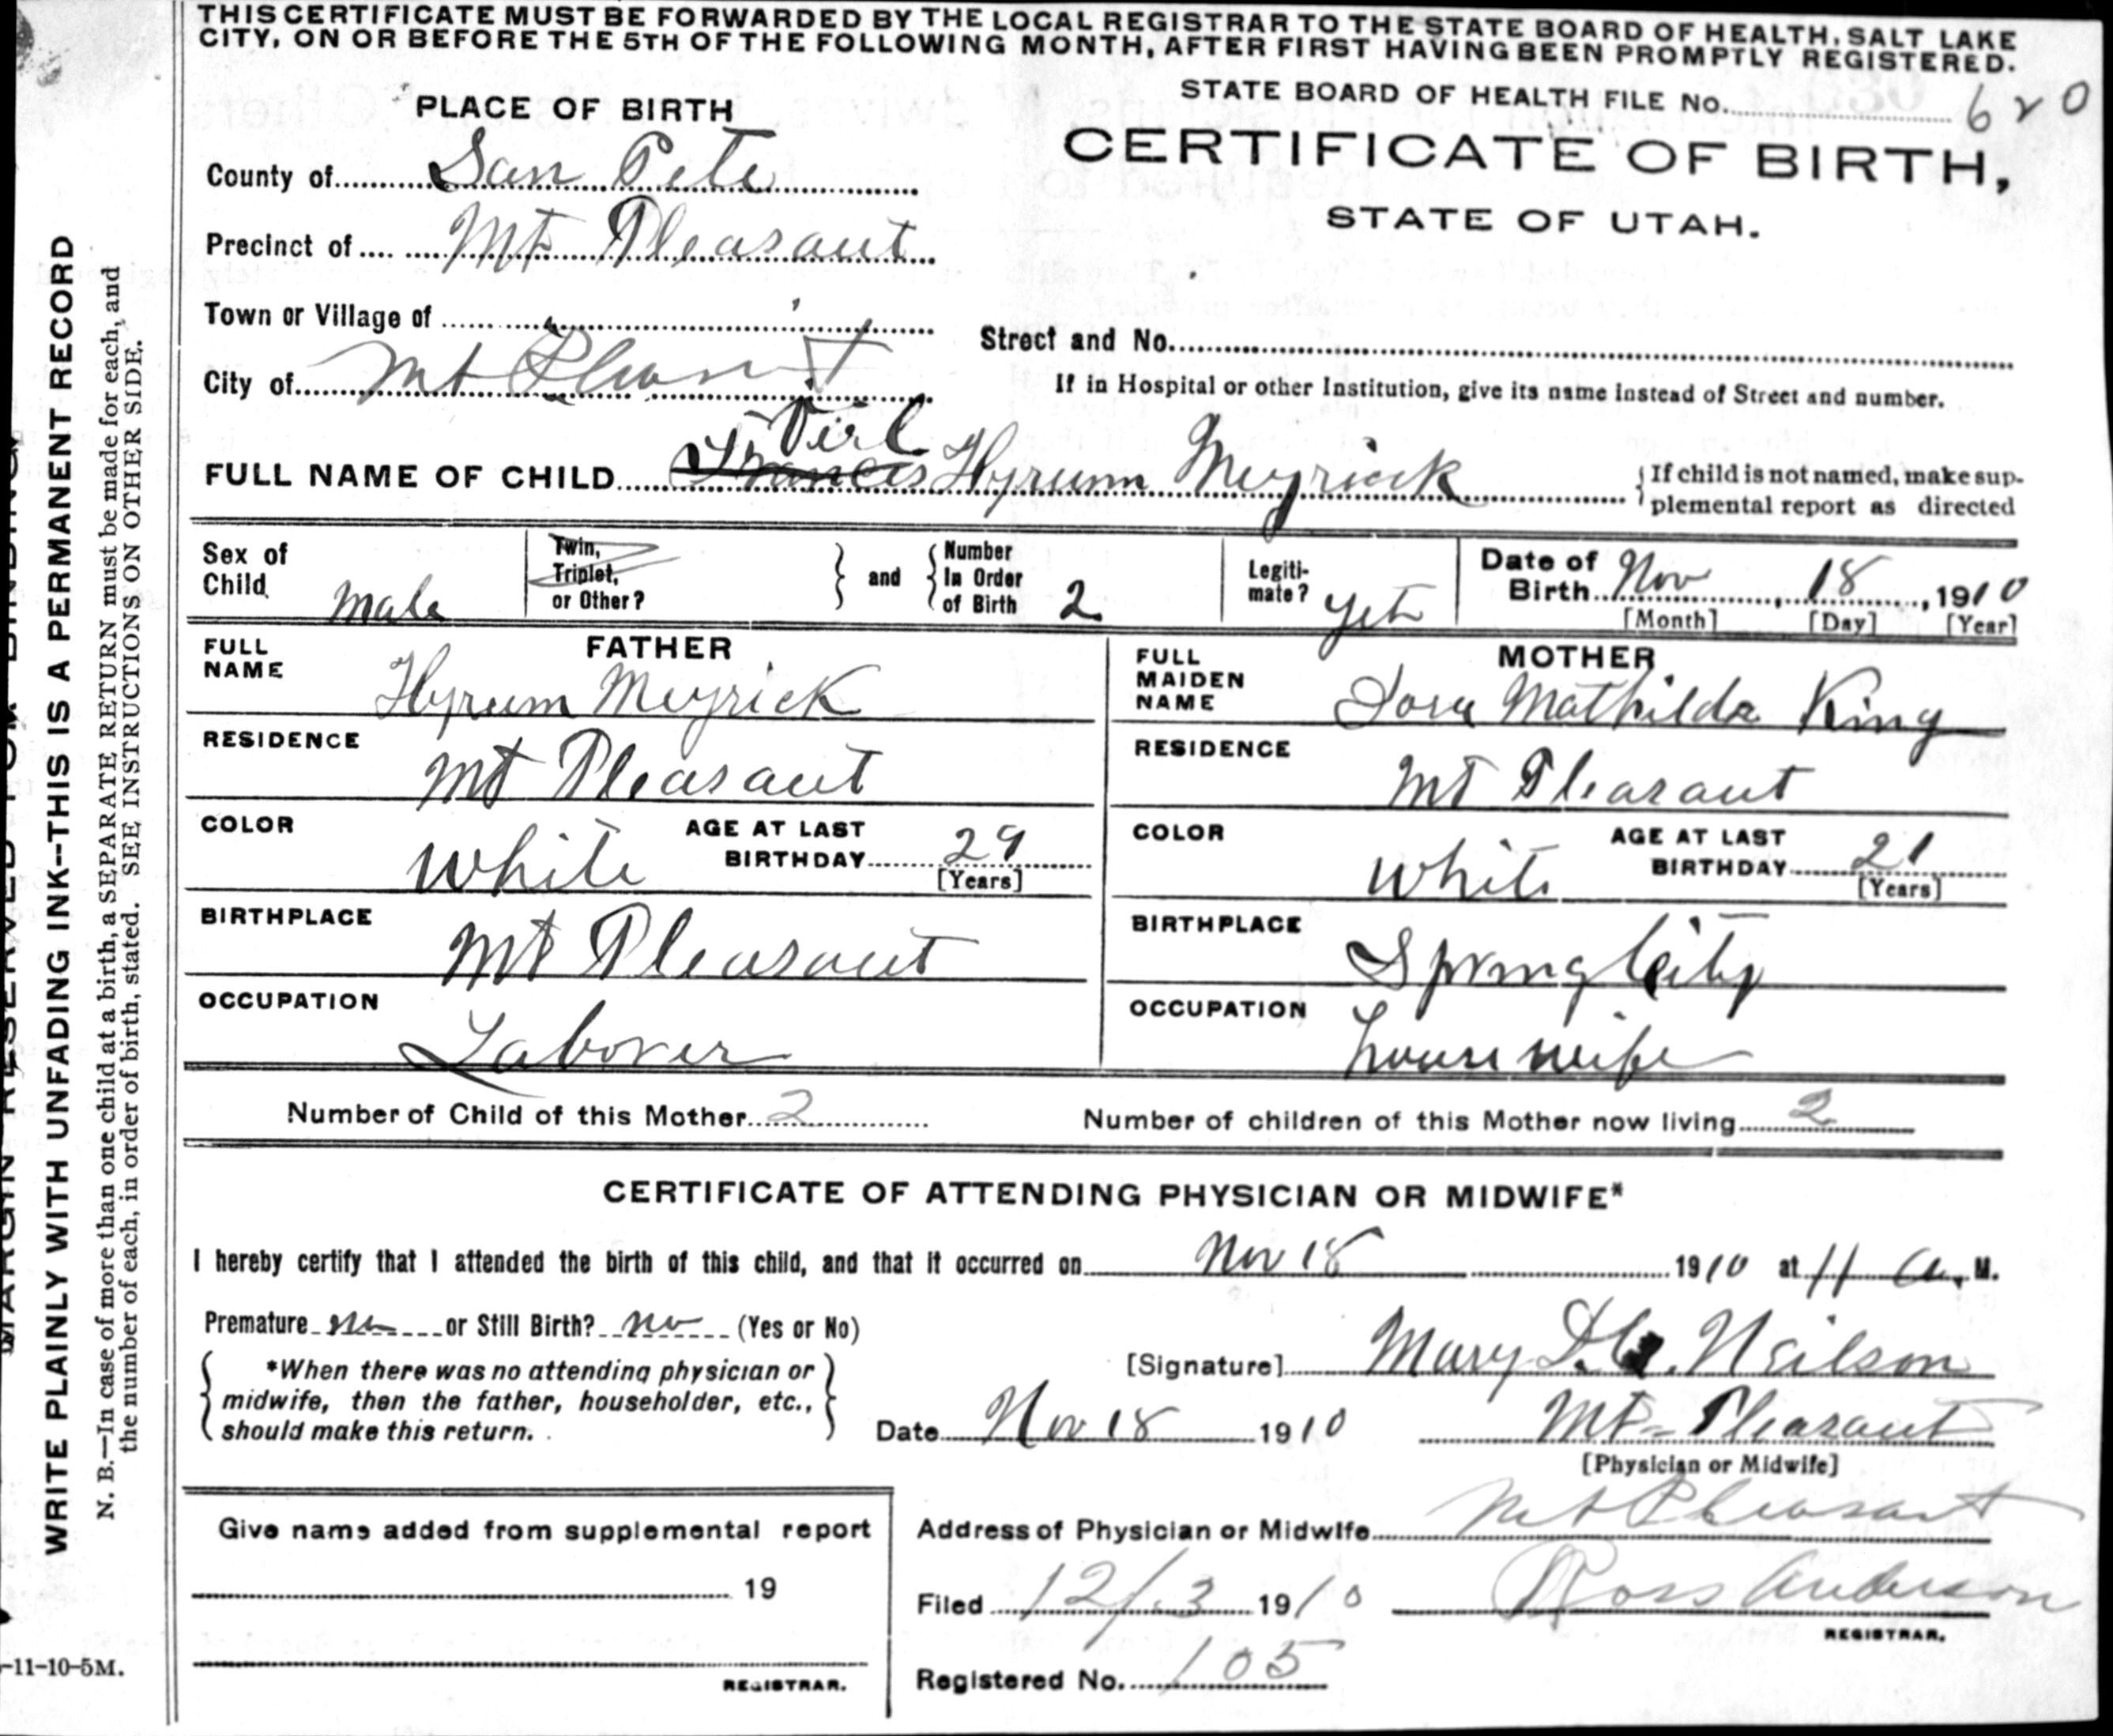 THIS CERTIFICATE MUST BE FORWARDED BY THE LOCAL REGISTRAR TO THE STATE BOARD OF HEALTH, SALT LAKE
CITY, ON OR BEFORE THE 5TH OF THE FOLLOWING MONTH, AFTER FIRST HAVING BEEN PROMPTLY REGISTERED.
STATE BOARD OF HEALTH FILE No. 620
PLACE OF BIRTH
CERTIFICATE OF BIRTH,
STATE OF UTAH.
County of San Pete
Precinct of Mt Pleasant
Town or Village of
Street and No.
City of Mt Pleasant
If in Hospital or other Institution, give its name instead of Street and number.
Virl
FULL NAME OF CHILD Francis Hyrum Meyrick
If child is not named, make sup-
plemental report as directed
Sex of
Child Male
Twin,
Triplet,
or Other?
and
Number
In Order
of Birth 2
Legiti-
mate? yes
Date of
Birth Nov, 18, 1910
[Month] [Day] [Year]
FATHER
FULL
NAME Hyrum Meyrick
RESIDENCE
Mt Pleasant
COLOR
White
AGE AT LAST
BIRTHDAY 29
[Years]
BIRTHPLACE
Mt Pleasant
OCCUPATION
Laborer
MOTHER
FULL
MAIDEN
NAME Mathilda King
RESIDENCE
Mt Pleasant
COLOR
White
AGE AT LAST
BIRTHDAY 21
[Years]
BIRTHPLACE
Spring City
OCCUPATION
house wife
Number of Child of this Mother 2
Number of children of this Mother now living 2
CERTIFICATE OF ATTENDING PHYSICIAN OR MIDWIFE*
I hereby certify that I attended the birth of this child, and that it occurred on Nov 18 1910 at 11 a. M.
Premature no or Still Birth? no (Yes or No)
*When there was no attending physician or
midwife, then the father, householder, etc.,
should make this return.
[Signature] Mary Neilson
Date Nov 18 1910
Mt Pleasant
[Physician or Midwife]
Give name added from supplemental report
19
REGISTRAR.
Address of Physician or Midwife Mt Pleasant
Filed 12/3 1910
Ross Anderson
REGISTRAR.
Registered No. 105
MARGIN RESERVED FOR BINDING
WRITE PLAINLY WITH UNFADING INK—THIS IS A PERMANENT RECORD
N. B.—In case of more than one child at a birth, a SEPARATE RETURN must be made for each, and
the number of each, in order of birth, stated. SEE INSTRUCTIONS ON OTHER SIDE.
-11-10-5M.